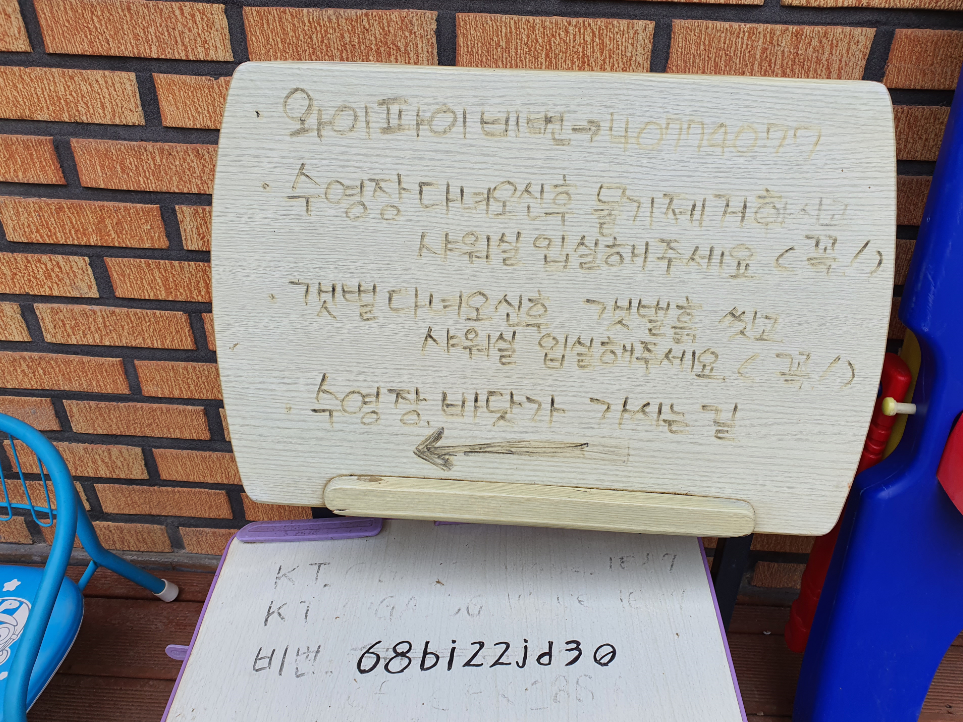 · 와이파이 비번→40774077
· 수영장 다녀오신후 물기제거하시고
샤워실 입실해주세요 (꼭!)
· 갯벌 다녀오신후 갯벌흙 씻고
샤워실 입실해주세요. (꼭!)
· 수영장, 바닷가 가시는 길
←
KT
KT
비번 68bizzjd30